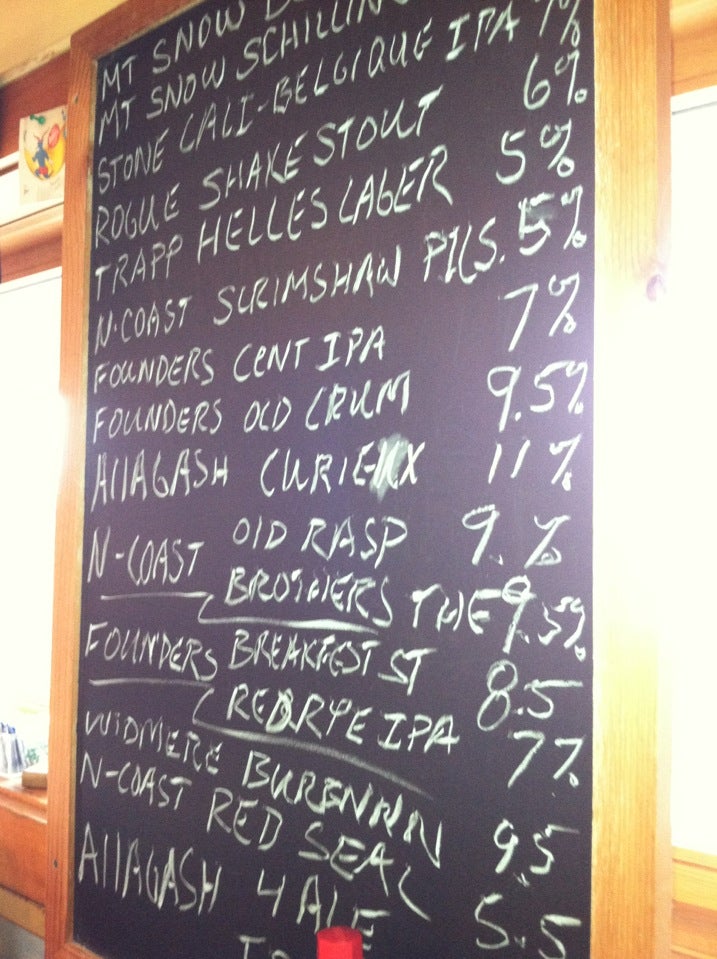 MT SNOW
MT SNOW SCHILLING 7%
STONE CALI-BELGIQUE IPA
ROGUE SHAKE STOUT 6%
TRAPP HELLES LAGER 5%
N.COAST SCRIMSHAW PILS. 5%
FOUNDERS CENT IPA 7%
FOUNDERS OLD CRUM 9.5%
AllAGASH CURIEUX 11%
N-COAST OlD RASP 9.%
BROTHERS THE 9.5%
FOUNDERS BREAKFEST ST 8.5
REDRYE IPA 7%
WIDMERE
N-COAST RED SEAL 9.5
AllAGASH 4 AlE 5.5